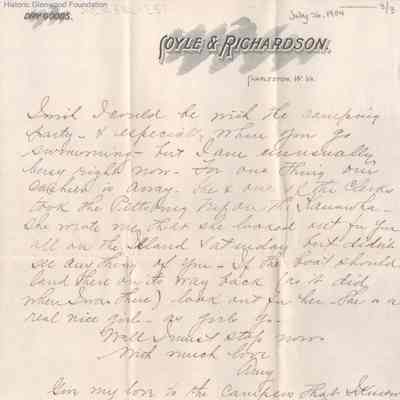 Historic Glenwood Foundation
July 26, 1904
3/3
DRY GOODS.
COYLE & RICHARDSON.
CHARLESTON, W. VA.
I wish I could be with the camping
party - & especially when you go
swimming - but I am unusually
busy right now - for one thing our
cashier is away. She & one of the clerks
took the Pittsburg trip on the Kanawha.
She wrote me that she looked out for you
all on the Island Saturday but didn't
see any thing of you - If the boat should
land there on its way back (as it did
when I was there) look out for her. She is a
real nice girl - as girls go -
Well I must stop now
With much love
Amy
Give my love to the campers that I know